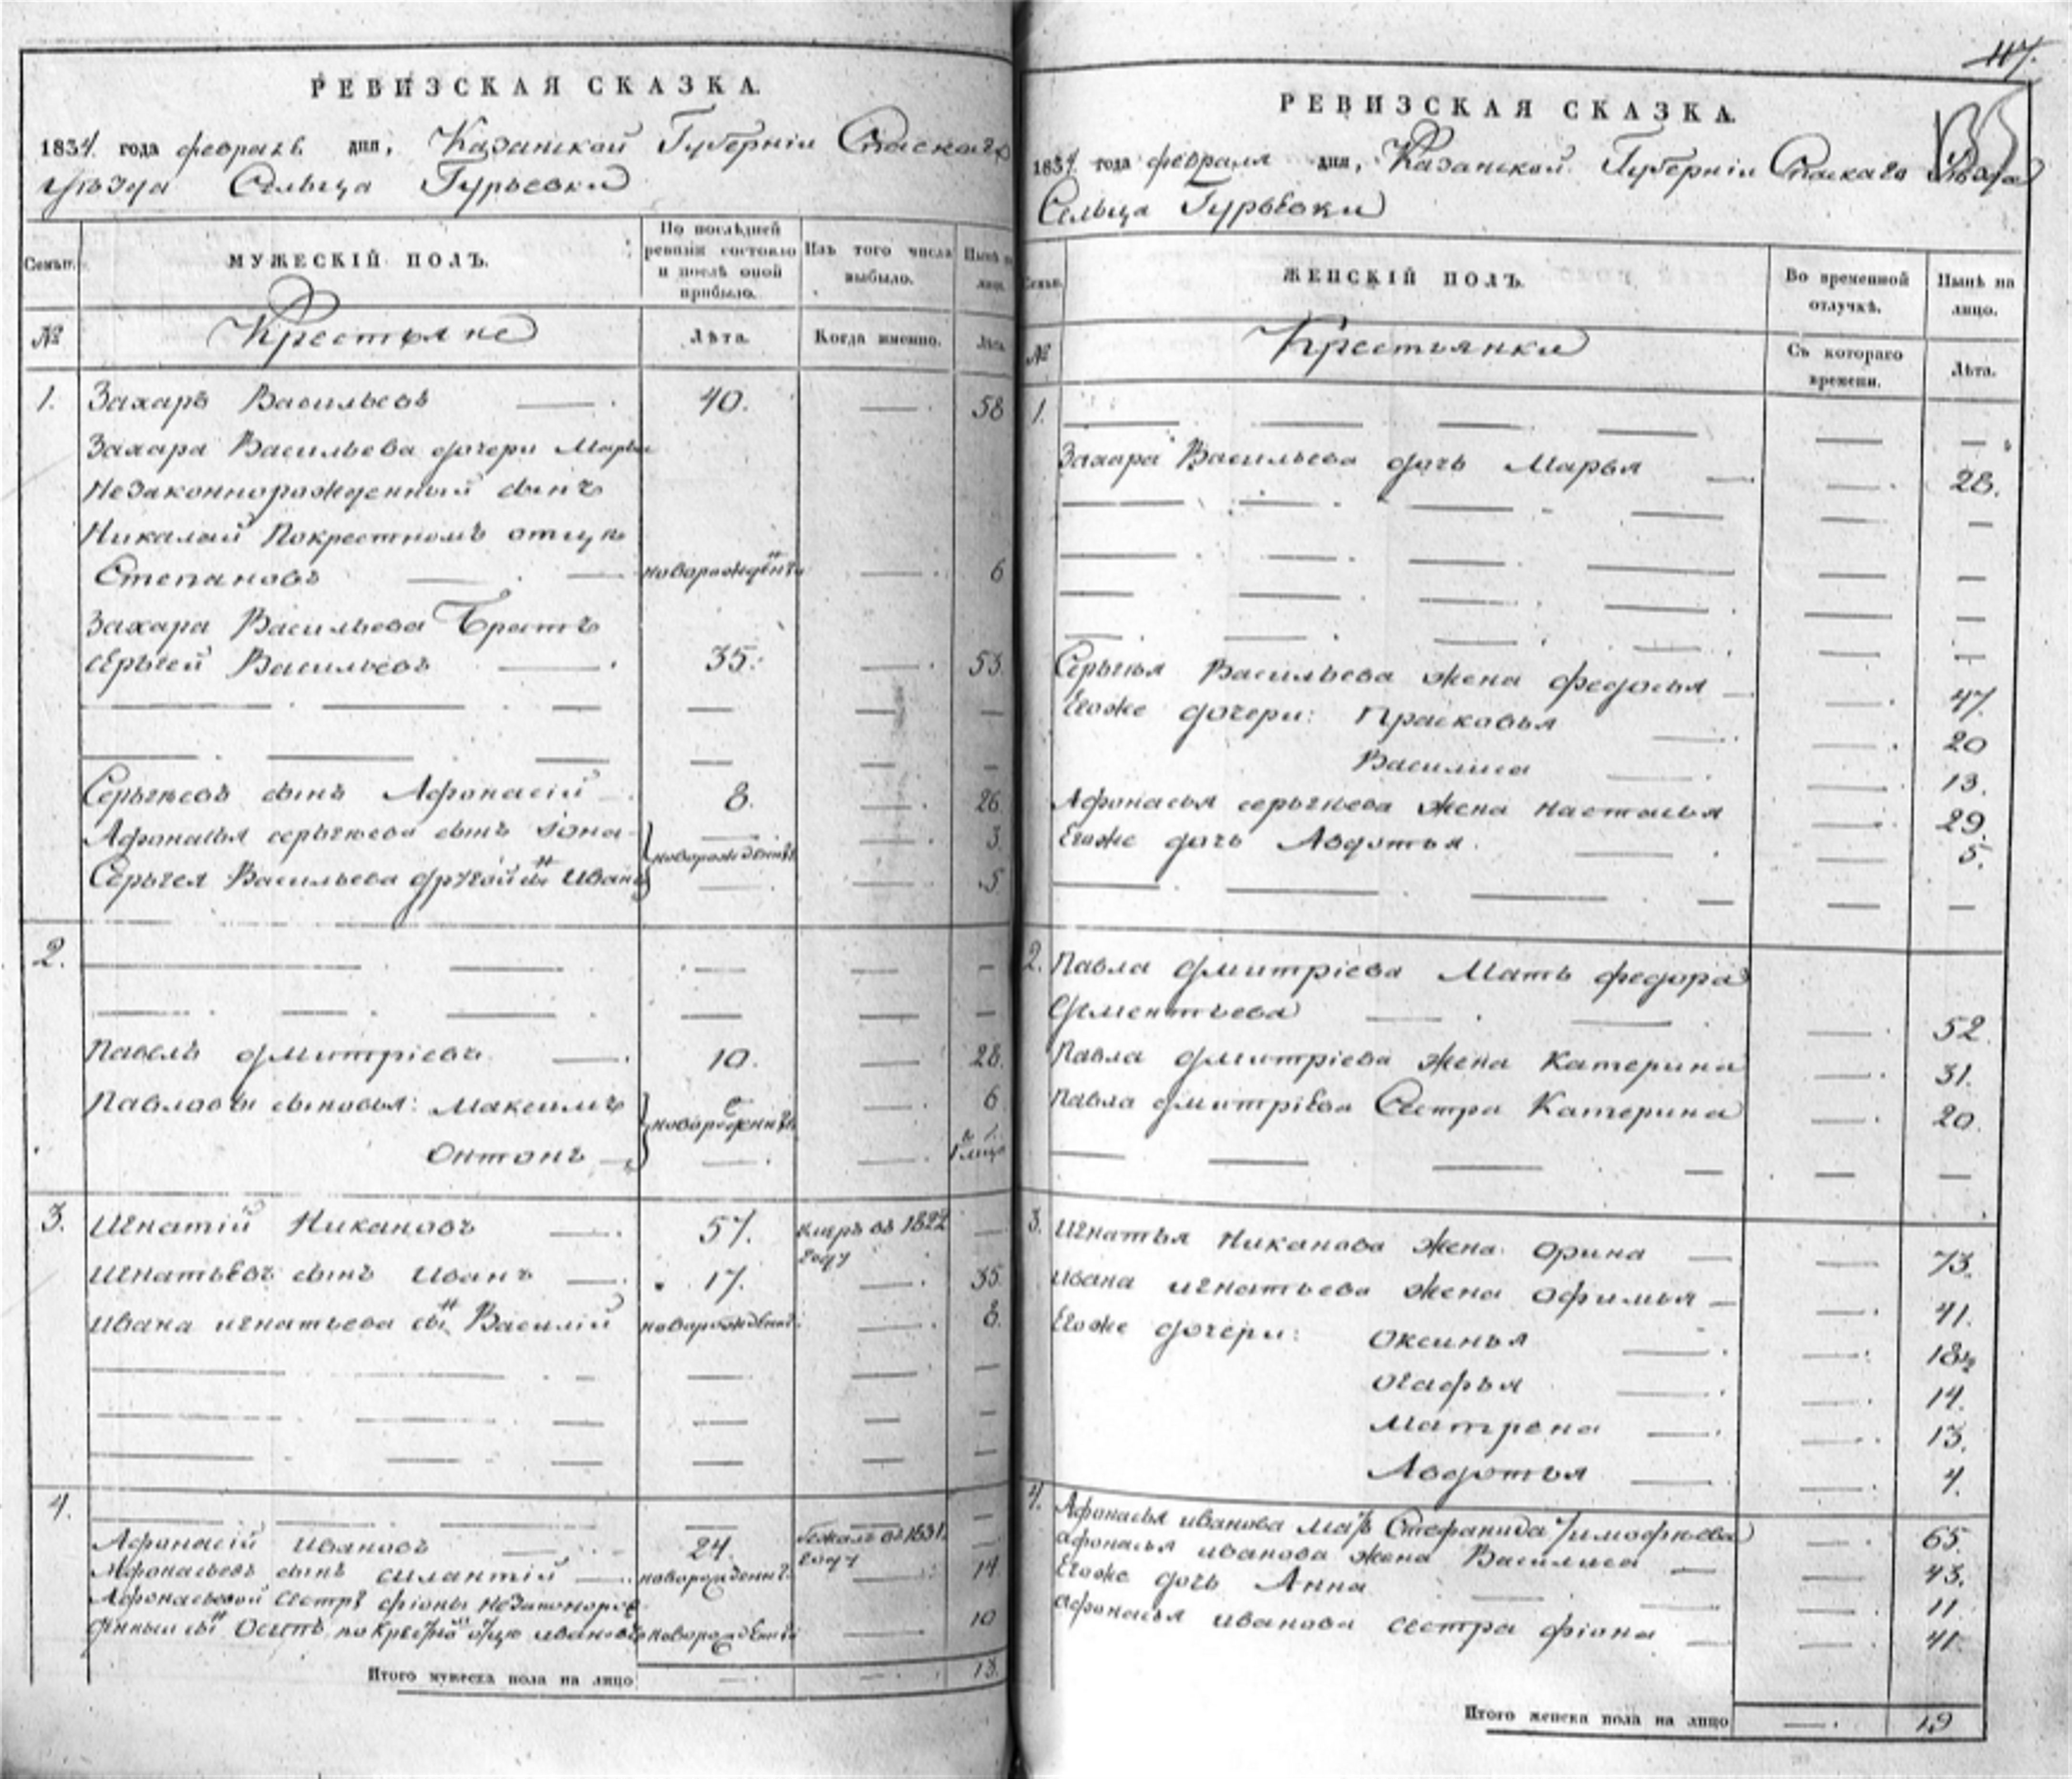 РЕВИЗСКАЯ СКАЗКА.
1834. года февраля дня, Казанской Губерніи Спаскаго
уѣзда Сельца Гурьевки
Семьи.
МУЖЕСКІЙ ПОЛЪ.
По послѣдней ревизіи состояло и послѣ оной прибыло.
Изъ того числа выбыло.
Нынѣ на лицо.
№
Крестьяне
Лѣта.
Когда именно.
Лѣта.
1. Захаръ Васильевъ 40. 58
Захара Васильева дочери Марьи
Незаконнорожденный сынъ
Николай Покрестномъ отцѣ
Степановъ новорожденъ 6
Захара Васильева Братъ
Серьгей Васильевъ 35. 53.
Серьгѣевъ сынъ Афонасій 8. 26
Афонасья серьгѣева сынъ Iона 3.
новорожденны
Серьгея Васильева другой сынъ Иванъ 5
2.
Павелъ дмитріевъ 10. 28.
Павловы сыновья: Максимъ 6
новорожденны
Онтонъ 1.
3. Игнатій Никановъ 57. умръ въ 1822
году
Игнатьевъ сынъ Иванъ 17. 35
Ивана игнатьева сынъ Василій новорожденъ 8.
4.
Афонасій Ивановъ 24 бежалъ въ 1831.
году
Афонасьевъ сынъ силантій новорожденъ. 14
Афонасьевой сестрѣ фіоны незаконорож-
денный сынъ Осипъ по крестном отцу ивановъ новорожденъ 10
Итого мужеска пола на лицо 13.
117.
РЕВИЗСКАЯ СКАЗКА.
1834. года февраля дня, Казанской Губерніи Спаскаго уѣзда
Сельца Гурьевки
Семьи.
ЖЕНСКІЙ ПОЛЪ.
Во временной отлучкѣ.
Нынѣ на лицо.
№
Крестьянки
Съ котораго времени.
Лѣта.
1.
Захара Васильева дочь Марья 28.
Серьгѣя Васильева жена федосья 47.
Егоже дочери: Прасковья 20
Василиса 13.
Афонасья серьгѣева жена настасья 29.
Егоже дочь Авдотья. 5.
2. Павла дмитріева Мать федора
дементьева 52.
Павла дмитріева жена Катерина 31.
Павла дмитріева Сестра Катерина 20.
3. Игнатья Никанова жена Орина 73.
Ивана игнатьева жена Офимья 41.
Егоже дочери: Оксинья 18½
Огафья 14.
Матрена 13.
Авдотья 4.
4. Афонасья иванова Мать Стефанида Тимофѣева 65.
афонасья иванова жена Василиса 43.
Егоже дочь Анна 11.
афонасья иванова сестра фіона 41.
Итого женска пола на лицо 19